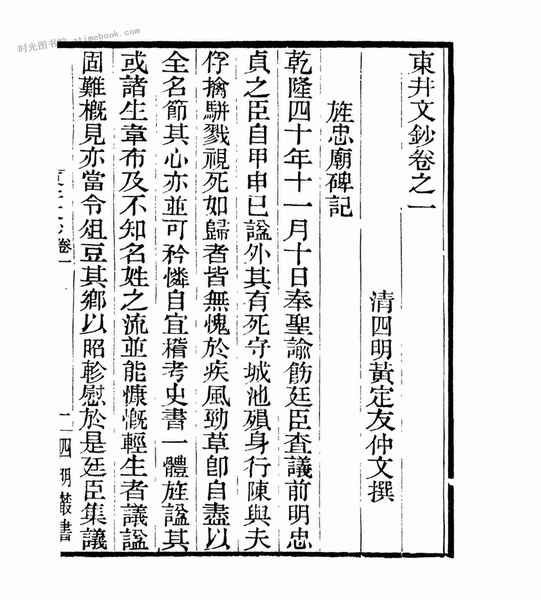 時光图书馆-www.atimebook.com
東井文鈔卷之一
清四明黃定友仲文撰
旌忠廟碑記
乾隆四十年十一月十日奉聖諭飭廷臣査議前明忠
貞之臣自甲申已諡外其有死守城池殞身行陳與夫
俘擒駢戮視死如歸者皆無愧於疾風勁草卽自盡以
全名節其心亦並可矜憐自宜稽考史書一體旌諡其
或諸生韋布及不知名姓之流並能慷慨輕生者議諡
固難槪見亦當令俎豆其鄉以昭軫慰於是廷臣集議
卷一
一四明叢書